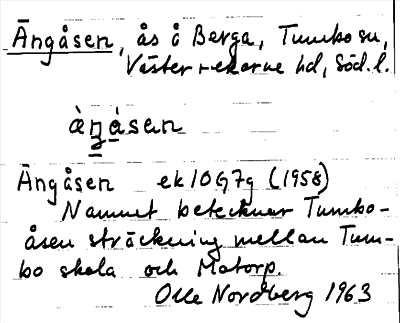 Ängåsen, ås å Berga, Tumbo sn,
Västerrekarne hd, Söd. l.
àŋåsen
Ängåsen ek 10G7g (1958)
Namnet betecknar Tumbo-
åsens sträckning mellan Tum-
bo skola och Matorp.
Olle Nordberg 1963